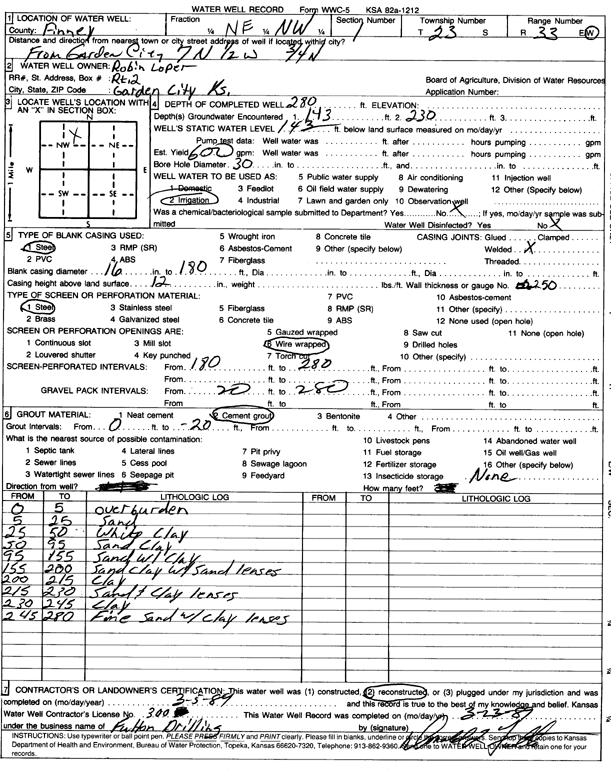 WATER WELL RECORD Form WWC-5 KSA 82a-1212
1 LOCATION OF WATER WELL: Fraction Section Number Township Number Range Number
County: Finney ¼ NE ¼ NW ¼ 1 T 23 S R 33 E/W
Distance and direction from nearest town or city street address of well if located within city?
From Garden City 7N 1/2W 3/4N
2 WATER WELL OWNER: Robin Loper
RR#, St. Address, Box # : Rt. 2 Board of Agriculture, Division of Water Resources
City, State, ZIP Code : Garden City Ks. Application Number:
3 LOCATE WELL'S LOCATION WITH AN "X" IN SECTION BOX:
N
X
NW NE
W E
SW SE
S
1 Mile
4 DEPTH OF COMPLETED WELL 280 ft. ELEVATION:
Depth(s) Groundwater Encountered 1. 143 ft. 2. 230 ft. 3. ft.
WELL'S STATIC WATER LEVEL 143 ft. below land surface measured on mo/day/yr
Pump test data: Well water was ft. after hours pumping gpm
Est. Yield 600 gpm: Well water was ft. after hours pumping gpm
Bore Hole Diameter 30 in. to ft., and in. to ft.
WELL WATER TO BE USED AS: 5 Public water supply 8 Air conditioning 11 Injection well
1 Domestic 3 Feedlot 6 Oil field water supply 9 Dewatering 12 Other (Specify below)
2 Irrigation 4 Industrial 7 Lawn and garden only 10 Observation well
Was a chemical/bacteriological sample submitted to Department? Yes No X ; If yes, mo/day/yr sample was sub-
mitted Water Well Disinfected? Yes No X
5 TYPE OF BLANK CASING USED: 5 Wrought iron 8 Concrete tile CASING JOINTS: Glued Clamped
1 Steel 3 RMP (SR) 6 Asbestos-Cement 9 Other (specify below) Welded X
2 PVC 4 ABS 7 Fiberglass Threaded
Blank casing diameter 16 in. to 180 ft., Dia in. to ft., Dia in. to ft.
Casing height above land surface 12 in., weight lbs./ft. Wall thickness or gauge No. 250
TYPE OF SCREEN OR PERFORATION MATERIAL: 7 PVC 10 Asbestos-cement
1 Steel 3 Stainless steel 5 Fiberglass 8 RMP (SR) 11 Other (specify)
2 Brass 4 Galvanized steel 6 Concrete tile 9 ABS 12 None used (open hole)
SCREEN OR PERFORATION OPENINGS ARE: 5 Gauzed wrapped 8 Saw cut 11 None (open hole)
1 Continuous slot 3 Mill slot 6 Wire wrapped 9 Drilled holes
2 Louvered shutter 4 Key punched 7 Torch cut 10 Other (specify)
SCREEN-PERFORATED INTERVALS: From 180 ft. to 280 ft., From ft. to ft.
From ft. to ft., From ft. to ft.
GRAVEL PACK INTERVALS: From 20 ft. to 280 ft., From ft. to ft.
From ft. to ft., From ft. to ft.
6 GROUT MATERIAL: 1 Neat cement 2 Cement grout 3 Bentonite 4 Other
Grout Intervals: From 0 ft. to -20 ft., From ft. to ft., From ft. to ft.
What is the nearest source of possible contamination: 10 Livestock pens 14 Abandoned water well
1 Septic tank 4 Lateral lines 7 Pit privy 11 Fuel storage 15 Oil well/Gas well
2 Sewer lines 5 Cess pool 8 Sewage lagoon 12 Fertilizer storage 16 Other (specify below)
3 Watertight sewer lines 6 Seepage pit 9 Feedyard 13 Insecticide storage None
Direction from well? How many feet?
FROM TO LITHOLOGIC LOG FROM TO LITHOLOGIC LOG
0 5 overburden
5 25 Sand
25 50 White Clay
50 95 Sand Clay
95 155 Sand w/ Clay
155 200 Sand Clay w/ Sand lenses
200 215 Clay
215 230 Sand & Clay lenses
230 245 Clay
245 280 Fine Sand w/ Clay lenses
7 CONTRACTOR'S OR LANDOWNER'S CERTIFICATION: This water well was (1) constructed, (2) reconstructed, or (3) plugged under my jurisdiction and was
completed on (mo/day/year) 3-5-89 and this record is true to the best of my knowledge and belief. Kansas
Water Well Contractor's License No. 300 This Water Well Record was completed on (mo/day/yr) 3-23-89
under the business name of Fulton Drilling by (signature)
INSTRUCTIONS: Use typewriter or ball point pen. PLEASE PRESS FIRMLY and PRINT clearly. Please fill in blanks, underline or circle the correct answers. Send top three copies to Kansas
Department of Health and Environment, Bureau of Water Protection, Topeka, Kansas 66620-7320, Telephone: 913-862-9360. Send one to WATER WELL OWNER and retain one for your
records.